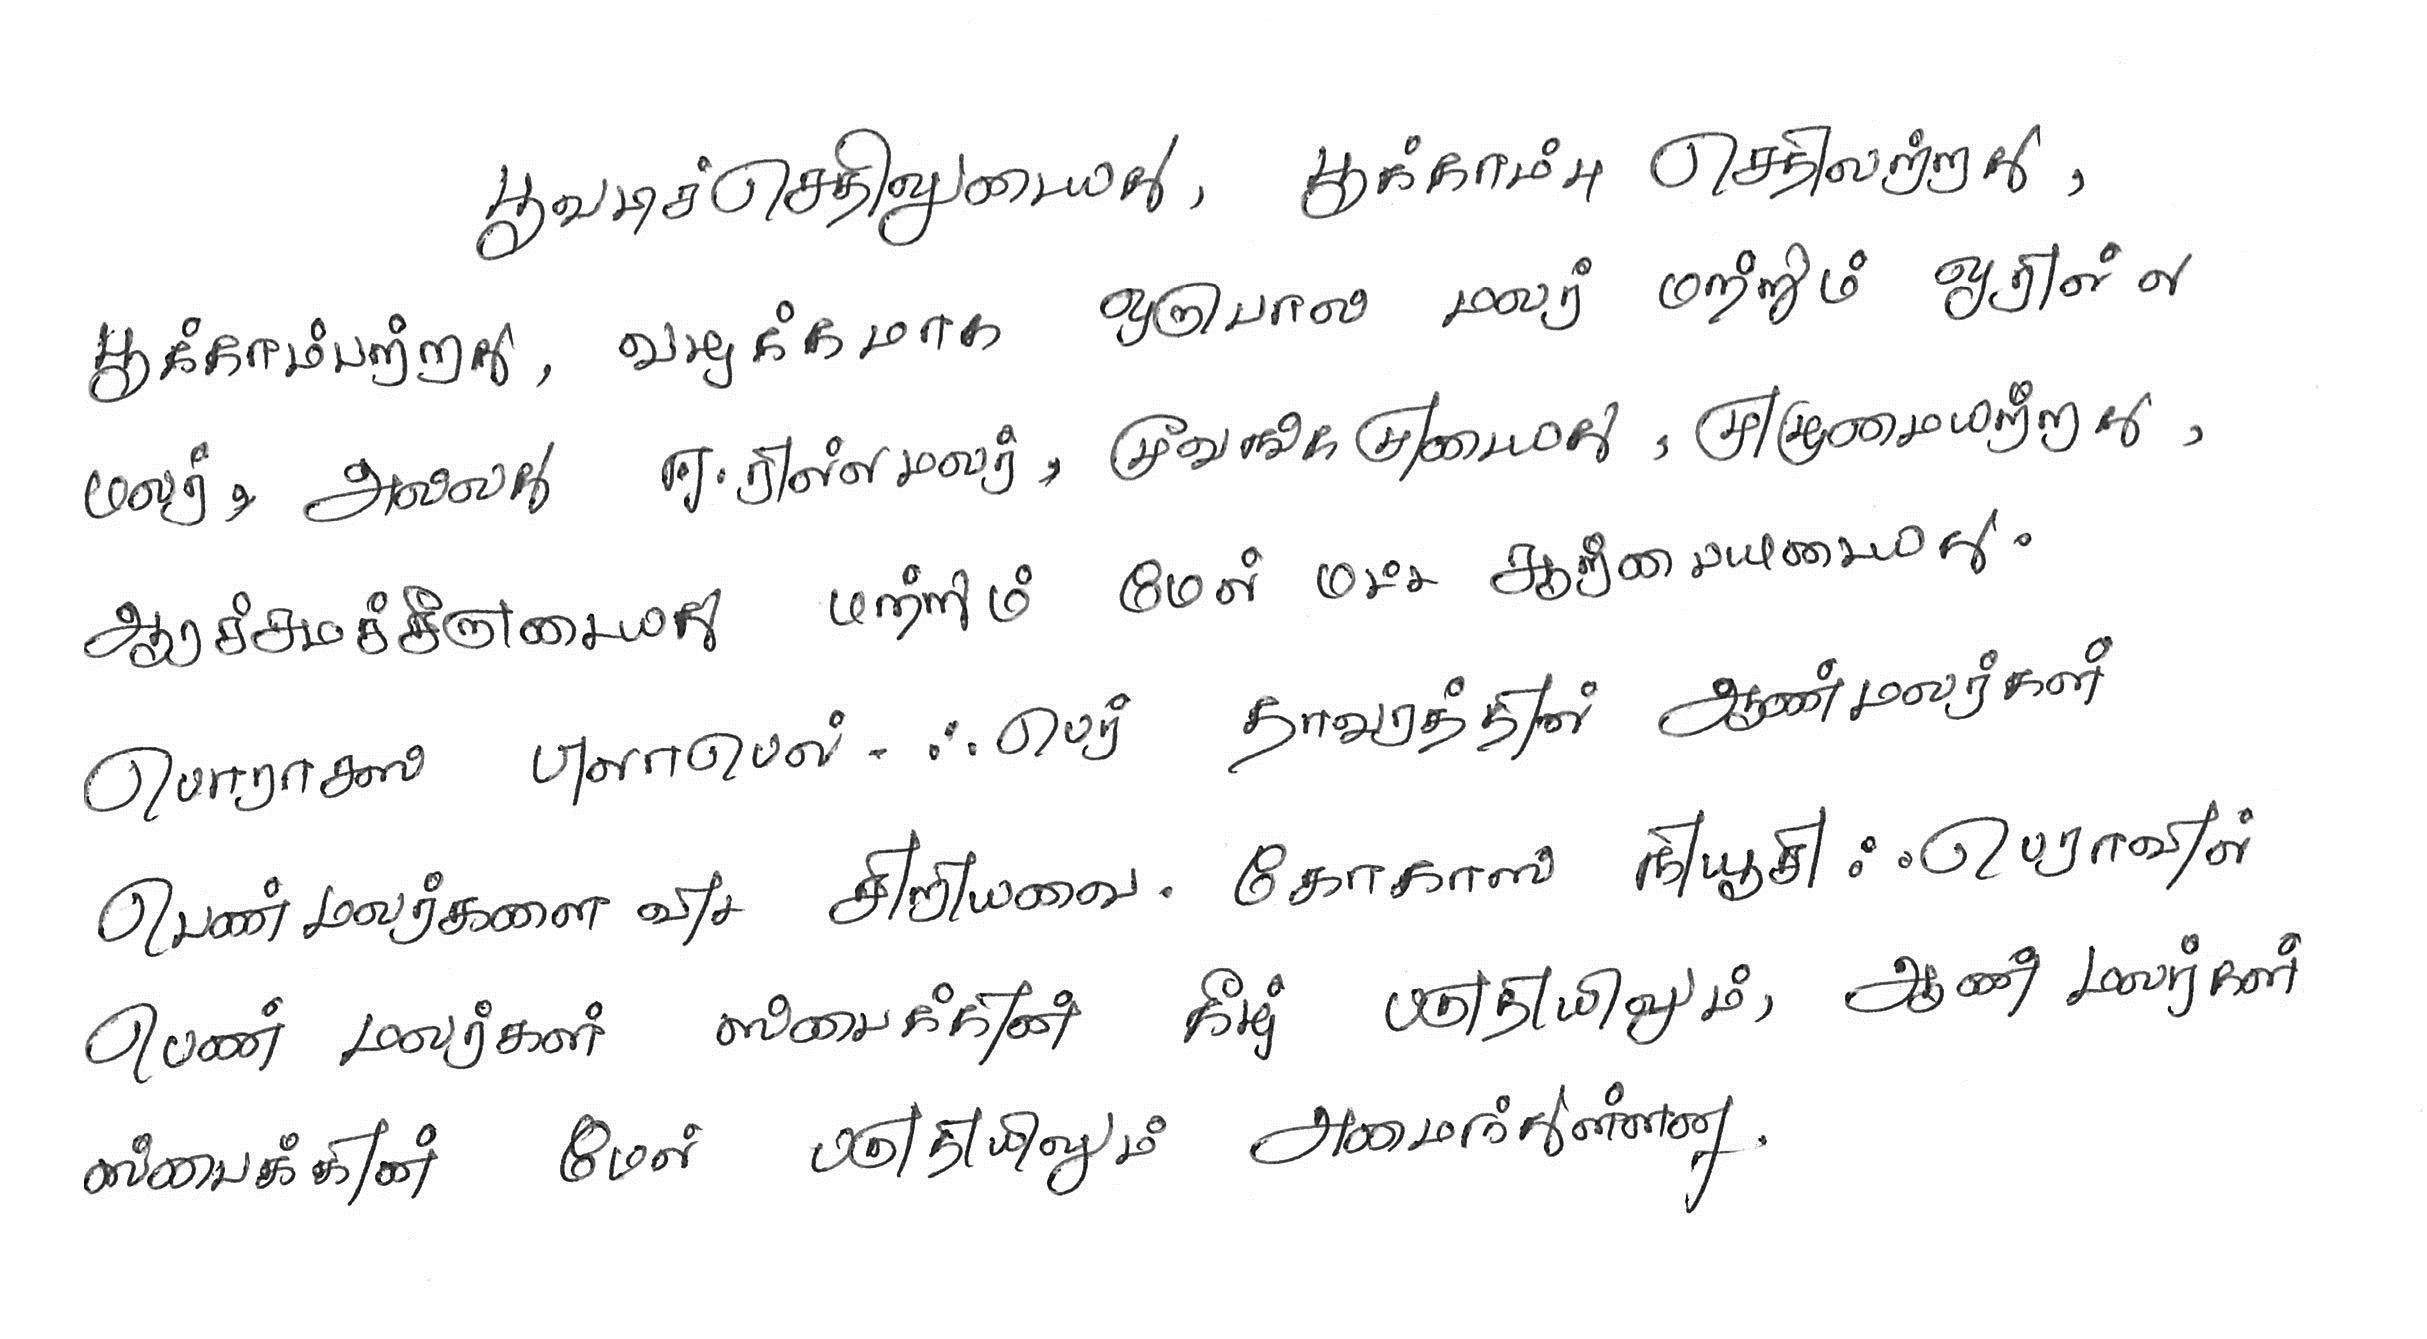 பூவடிச்செதிலுடையது, பூக்காம்பு செதிலற்றது,
பூக்காம்பற்றது, வழக்கமாக ஒருபால் மலர் மற்றும் ஓரில்ல
மலர், அல்லது ஈரில்லமலர், மூவங்கமுடையது, முழுமையற்றது,
ஆரச்சமச்சீருடையது மற்றும் மேல் மட்ட சூற்பையுடையது.
பொராசஸ் ஃபிளாபெல்லிஃபெர் தாவரத்தின் ஆண்மலர்கள்
பெண்மலர்களைவிட சிறியவை. கோகாஸ் நியூசிஃபெராவில்
பெண் மலர்கள் ஸ்பைக்கின் கீழ் பகுதியிலும், ஆண் மலர்கள்
ஸ்பைக்கின் மேல் பகுதியிலும் அமைந்துள்ளன.